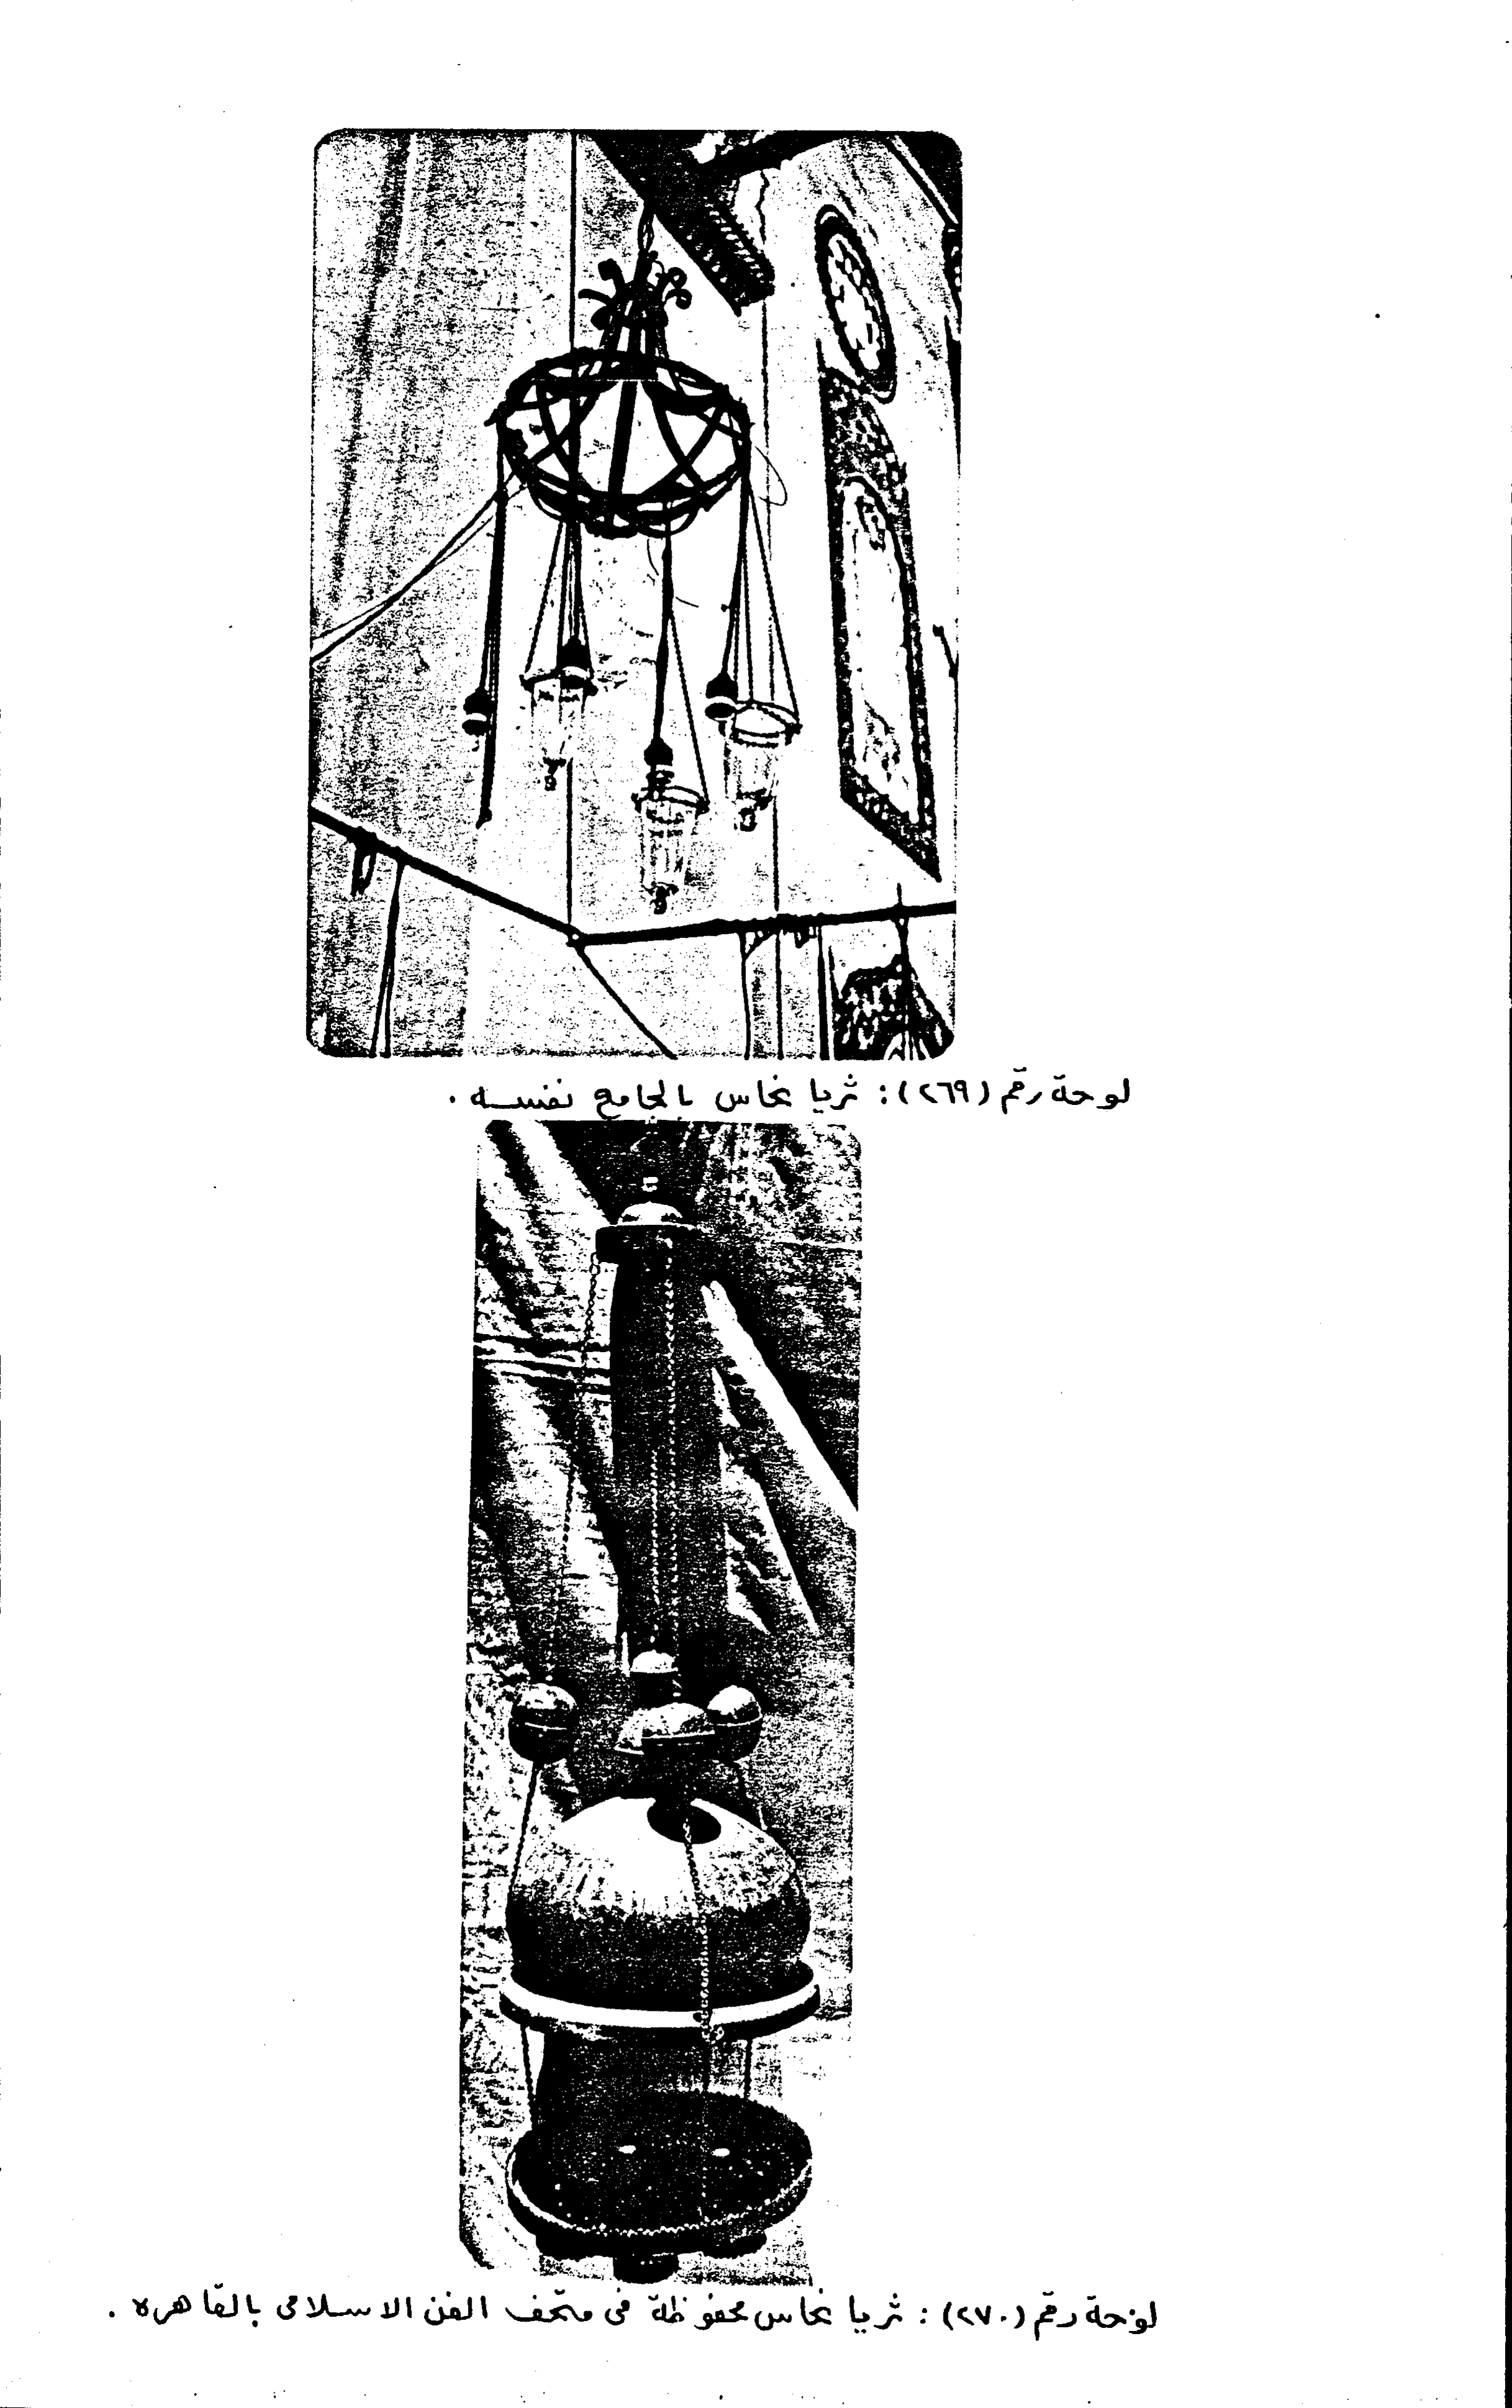 لوحة رقم (٢٦٩): ثريا نحاس بالجامع نفسه .
لوحة رقم (٢٧٠) : ثريا نحاس محفوظة فى متحف الفن الاسلامى بالقاهره .